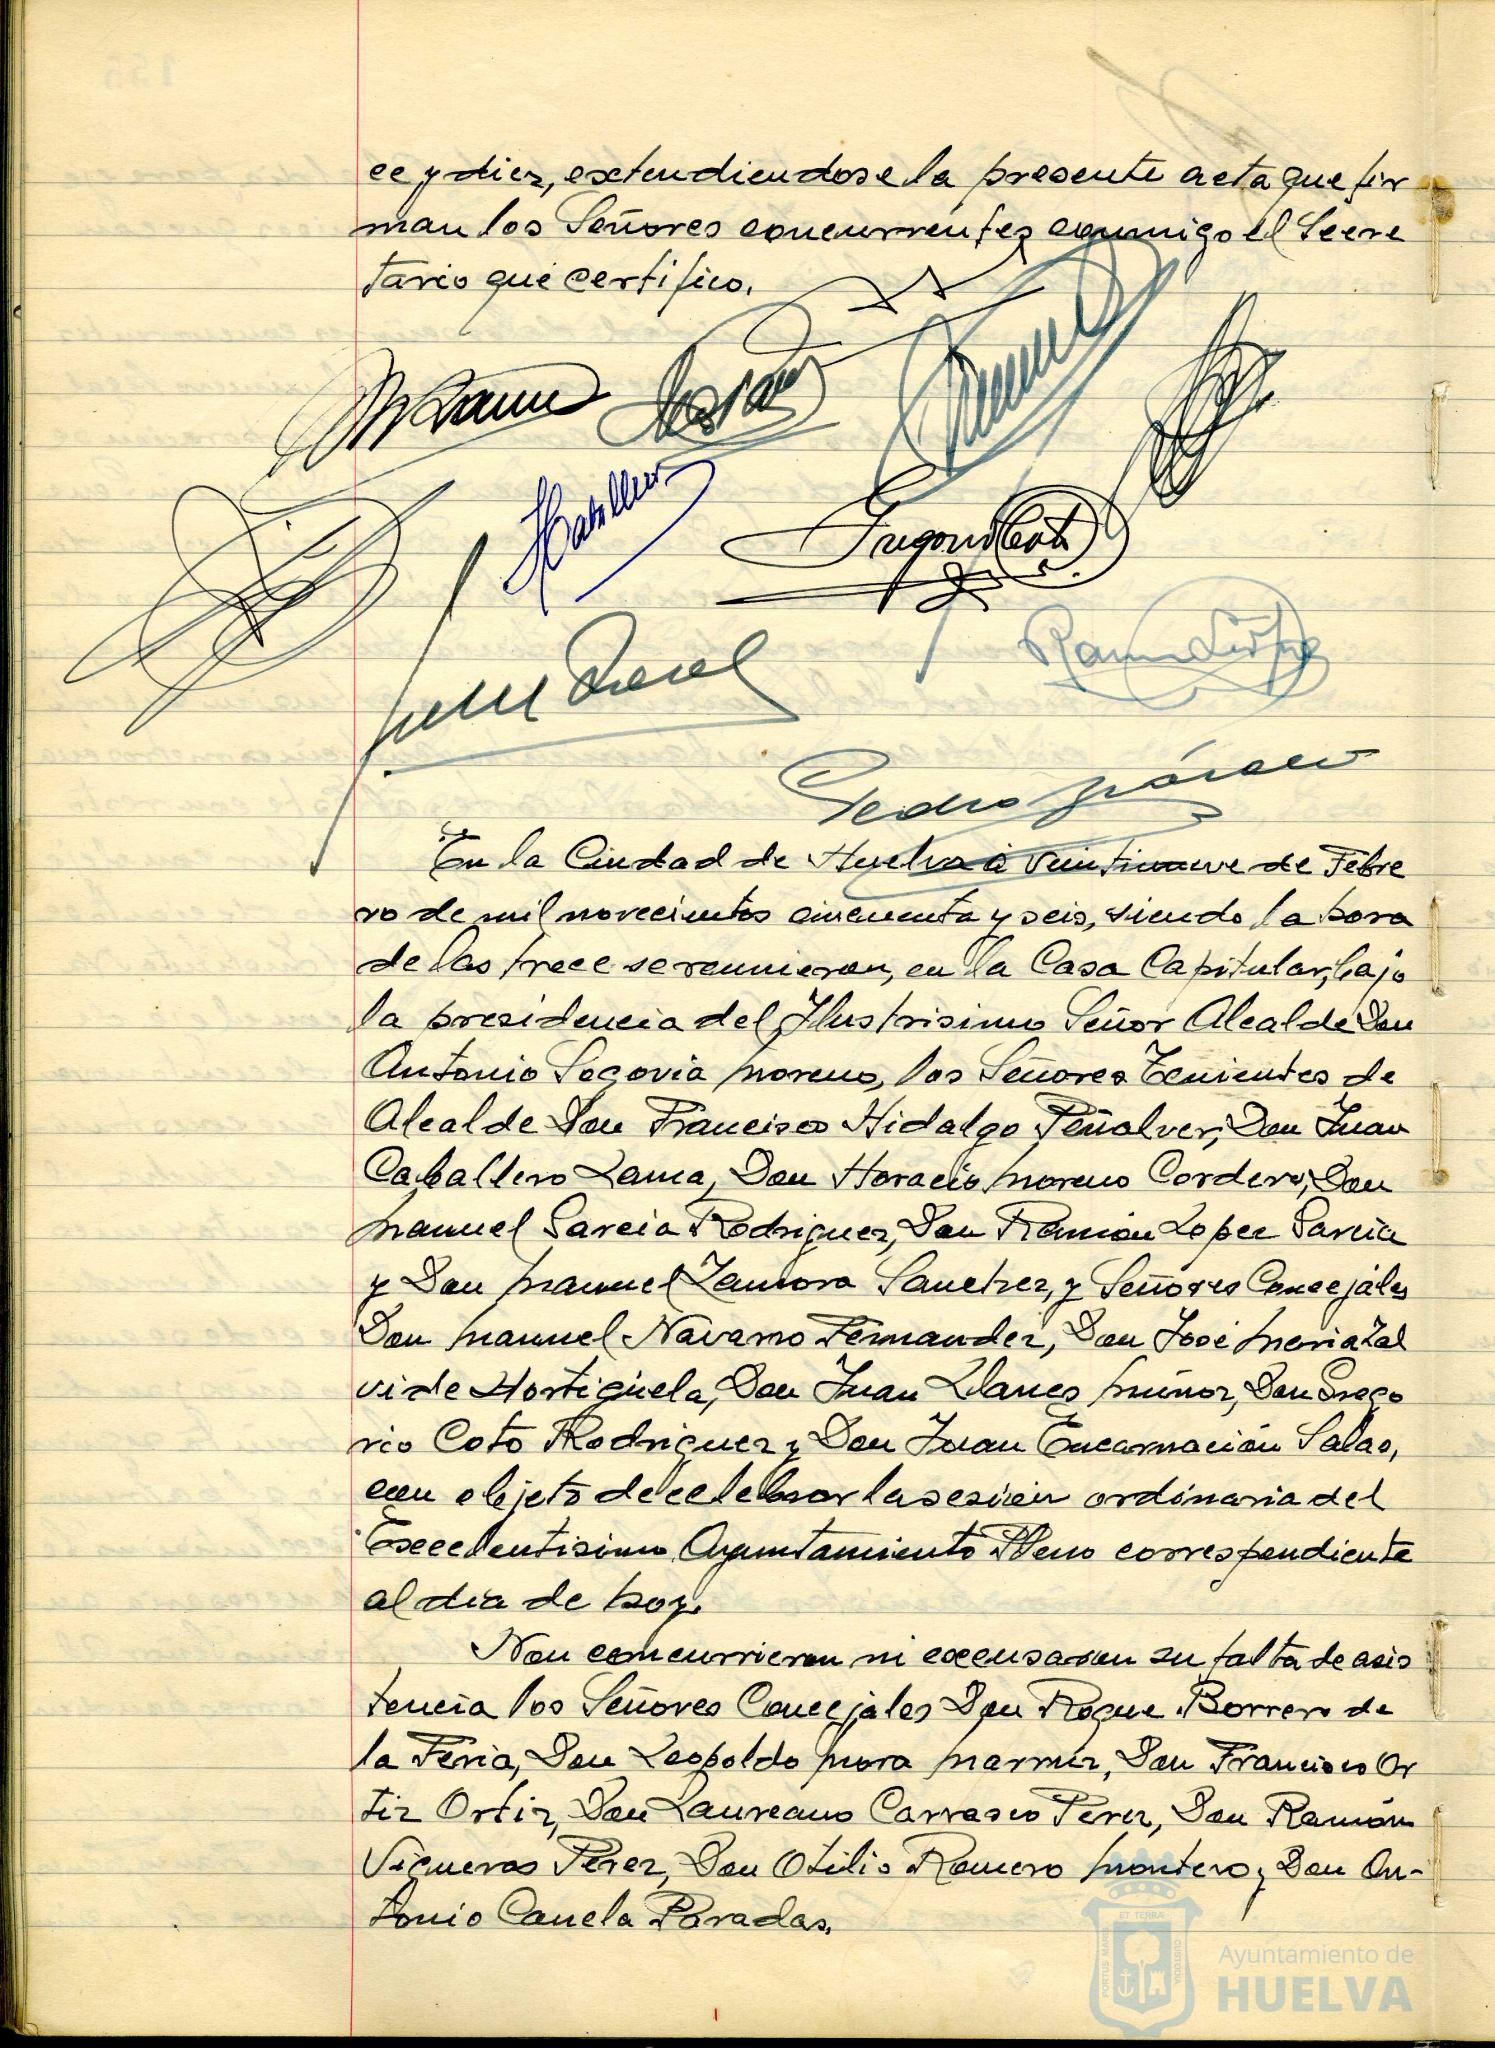 ce y diez, extendiendose la presente acta que fir
man los Señores concurrentes conmigo el Secre
tario que certifico.
Gregorio Coto
Pedro
En la Ciudad de Huelva a veintinueve de Febre
ro de mil novecientos cincuenta y seis, siendo la hora
de las trece se reunieron, en la Casa Capitular, bajo
la presidencia del Ilustrisimo Señor Alcalde Don
Antonio Segovia Moreno, los Señores Tenientes de
Alcalde Don Francisco Hidalgo Peñalver, Don Juan
Caballero Lama, Don Horacio Moreno Cordero, Don
Manuel Garcia Rodriguez, Don Ramón Lopez Garcia
y Don Manuel Zamora Sanchez, y Señores Concejáles
Don Manuel Navarro Fernandez, Don José Maria Zal
vide Hortigüela, Don Juan Llanes Múñoz, Don Grego
rio Coto Rodriguez y Don Juan Encarnación Salas,
con objeto de celebrar la sesión ordinaria del
Excelentisimo Ayuntamiento Pleno correspondiente
al dia de hoy.
Non concurrieron ni excusaron su falta de asis
tencia los Señores Concejales Don Roque Borrero de
la Feria, Don Leopoldo Mora Don Francisco Or
tiz Ortiz, Don Laureano Carrasco Perez, Don Ramón
Vigueras Pérez, Don Otilio Romero Montero y Don An-
tonio Canela Paradas.
PORTUS MARIS ET TERRÆ CUSTODIA
Ayuntamiento de
HUELVA